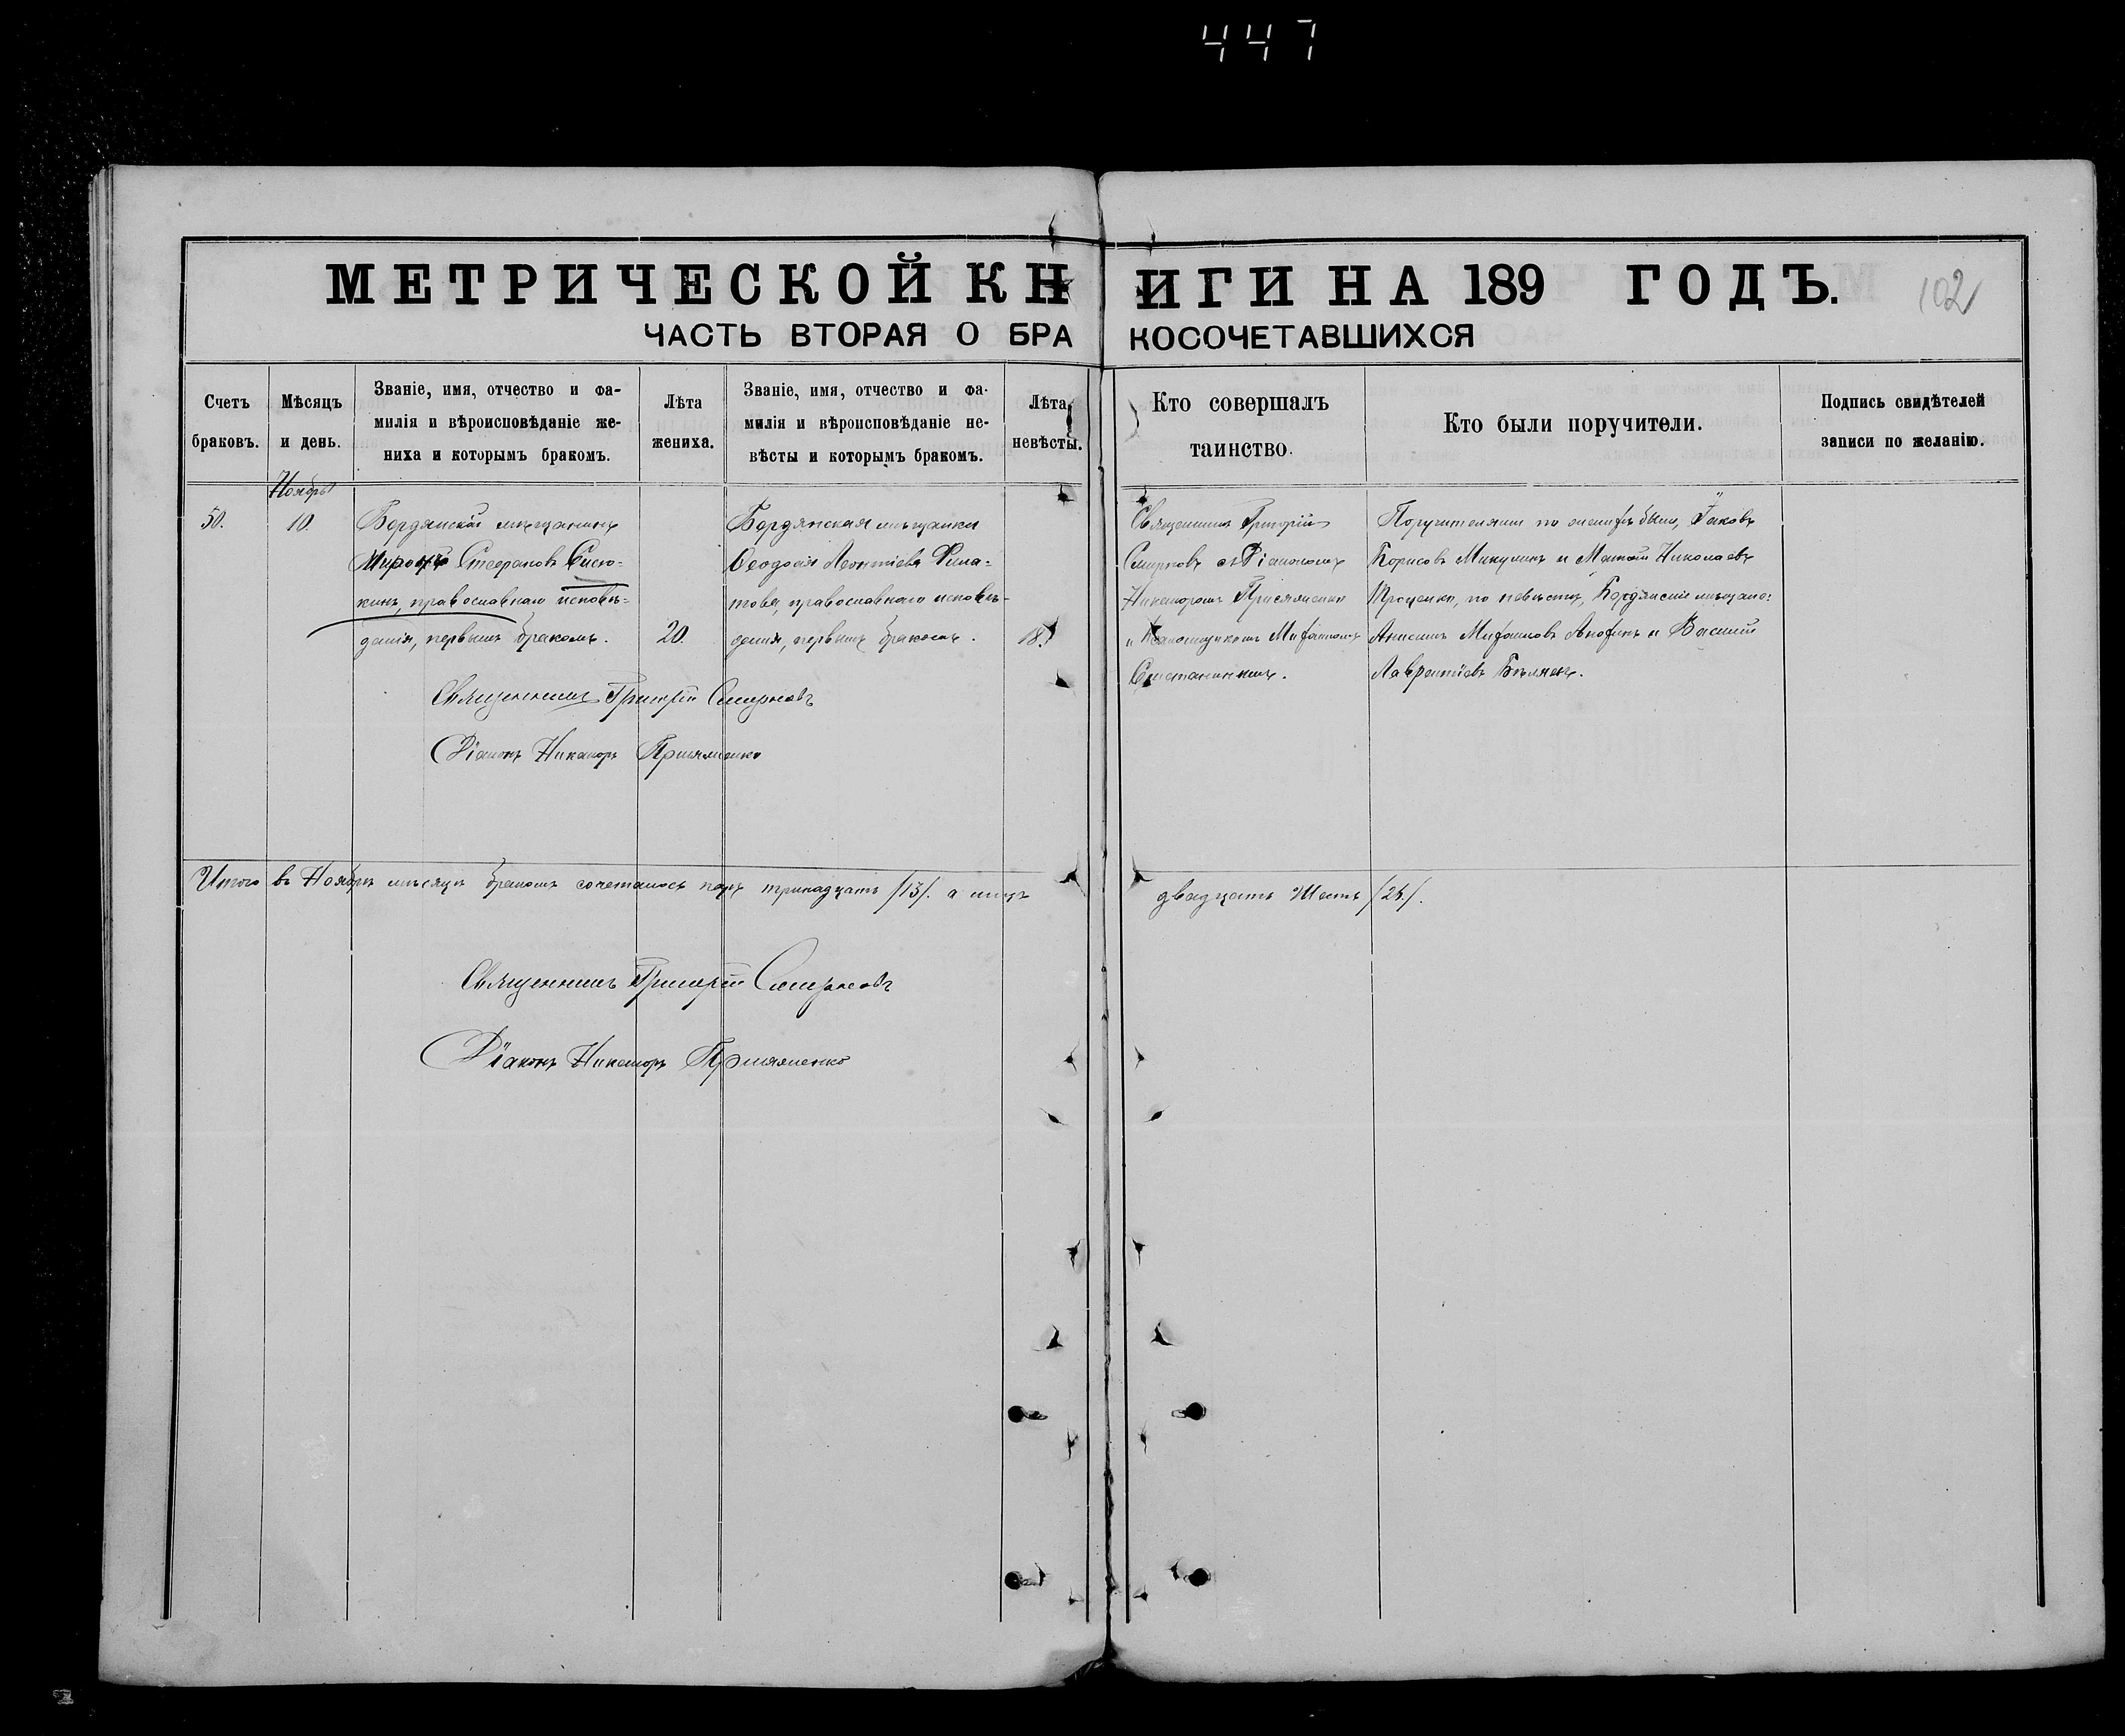 447
МЕТРИЧЕСКОЙ КНИГИ НА 189 ГОДЪ.
102
ЧАСТЬ ВТОРАЯ О БРАКОСОЧЕТАВШИХСЯ
Счетъ браковъ.
Мѣсяцъ и день.
Званіе, имя, отчество и фа-
милія и вѣроисповѣданіе же-
ниха и которымъ бракомъ.
Лѣта жениха.
Званіе, имя, отчество и фа-
милія и вѣроисповѣданіе не-
вѣсты и которымъ бракомъ.
Лѣта невѣсты.
Кто совершалъ
таинство.
Кто были поручители.
Подпись свидѣтелей
записи по желанію.
Ноябрь
50.
10.
Бердянскій мѣщанинъ
Стефановъ
кинъ, православнаго исповѣ-
данія, первымъ бракомъ.
20.
Бердянская мѣщанка
Ѳеодосія Леонтіева Фила-
това, православнаго исповѣ-
данія, первымъ бракомъ.
18.
Священникъ Григорій
Смирновъ съ Діакономъ
Никаноромъ Присяженко
и Псаломщикомъ
Поручителями по женихѣ были, Іаковъ
Борисовъ Микулинъ и Николаевъ
Проценко, по невѣстѣ, Бердянскіе мѣщане:
и Василій
Лаврентіевъ
Священникъ Григорій Смирновъ
Діаконъ Никаноръ Присяженко
Итого въ Ноябрѣ мѣсяцѣ бракомъ сочеталось паръ тринадцать /13/. а лицъ двадцать шесть /26/.
Священникъ Григорій Смирновъ
Діаконъ Никаноръ Присяженко